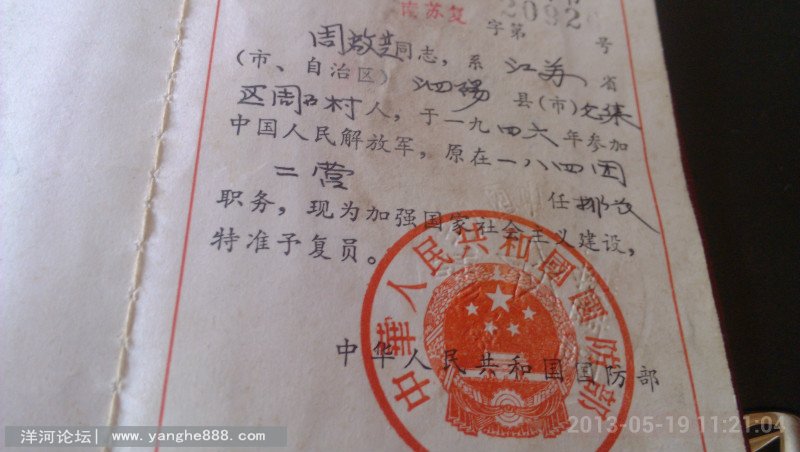 南苏复
字第2092号
周敬芝同志，系江苏省
（市、自治区）泗杨县（市）
区周 村人，于一九四六年参加
中国人民解放军，原在一八四团
二营任
职务，现为加强国家社会主义建设，
特准予复员。
中华人民共和国国防部
中華人民共和國國防部
洋河论坛| www.yanghe888.com
2013-05-19 11:21:04